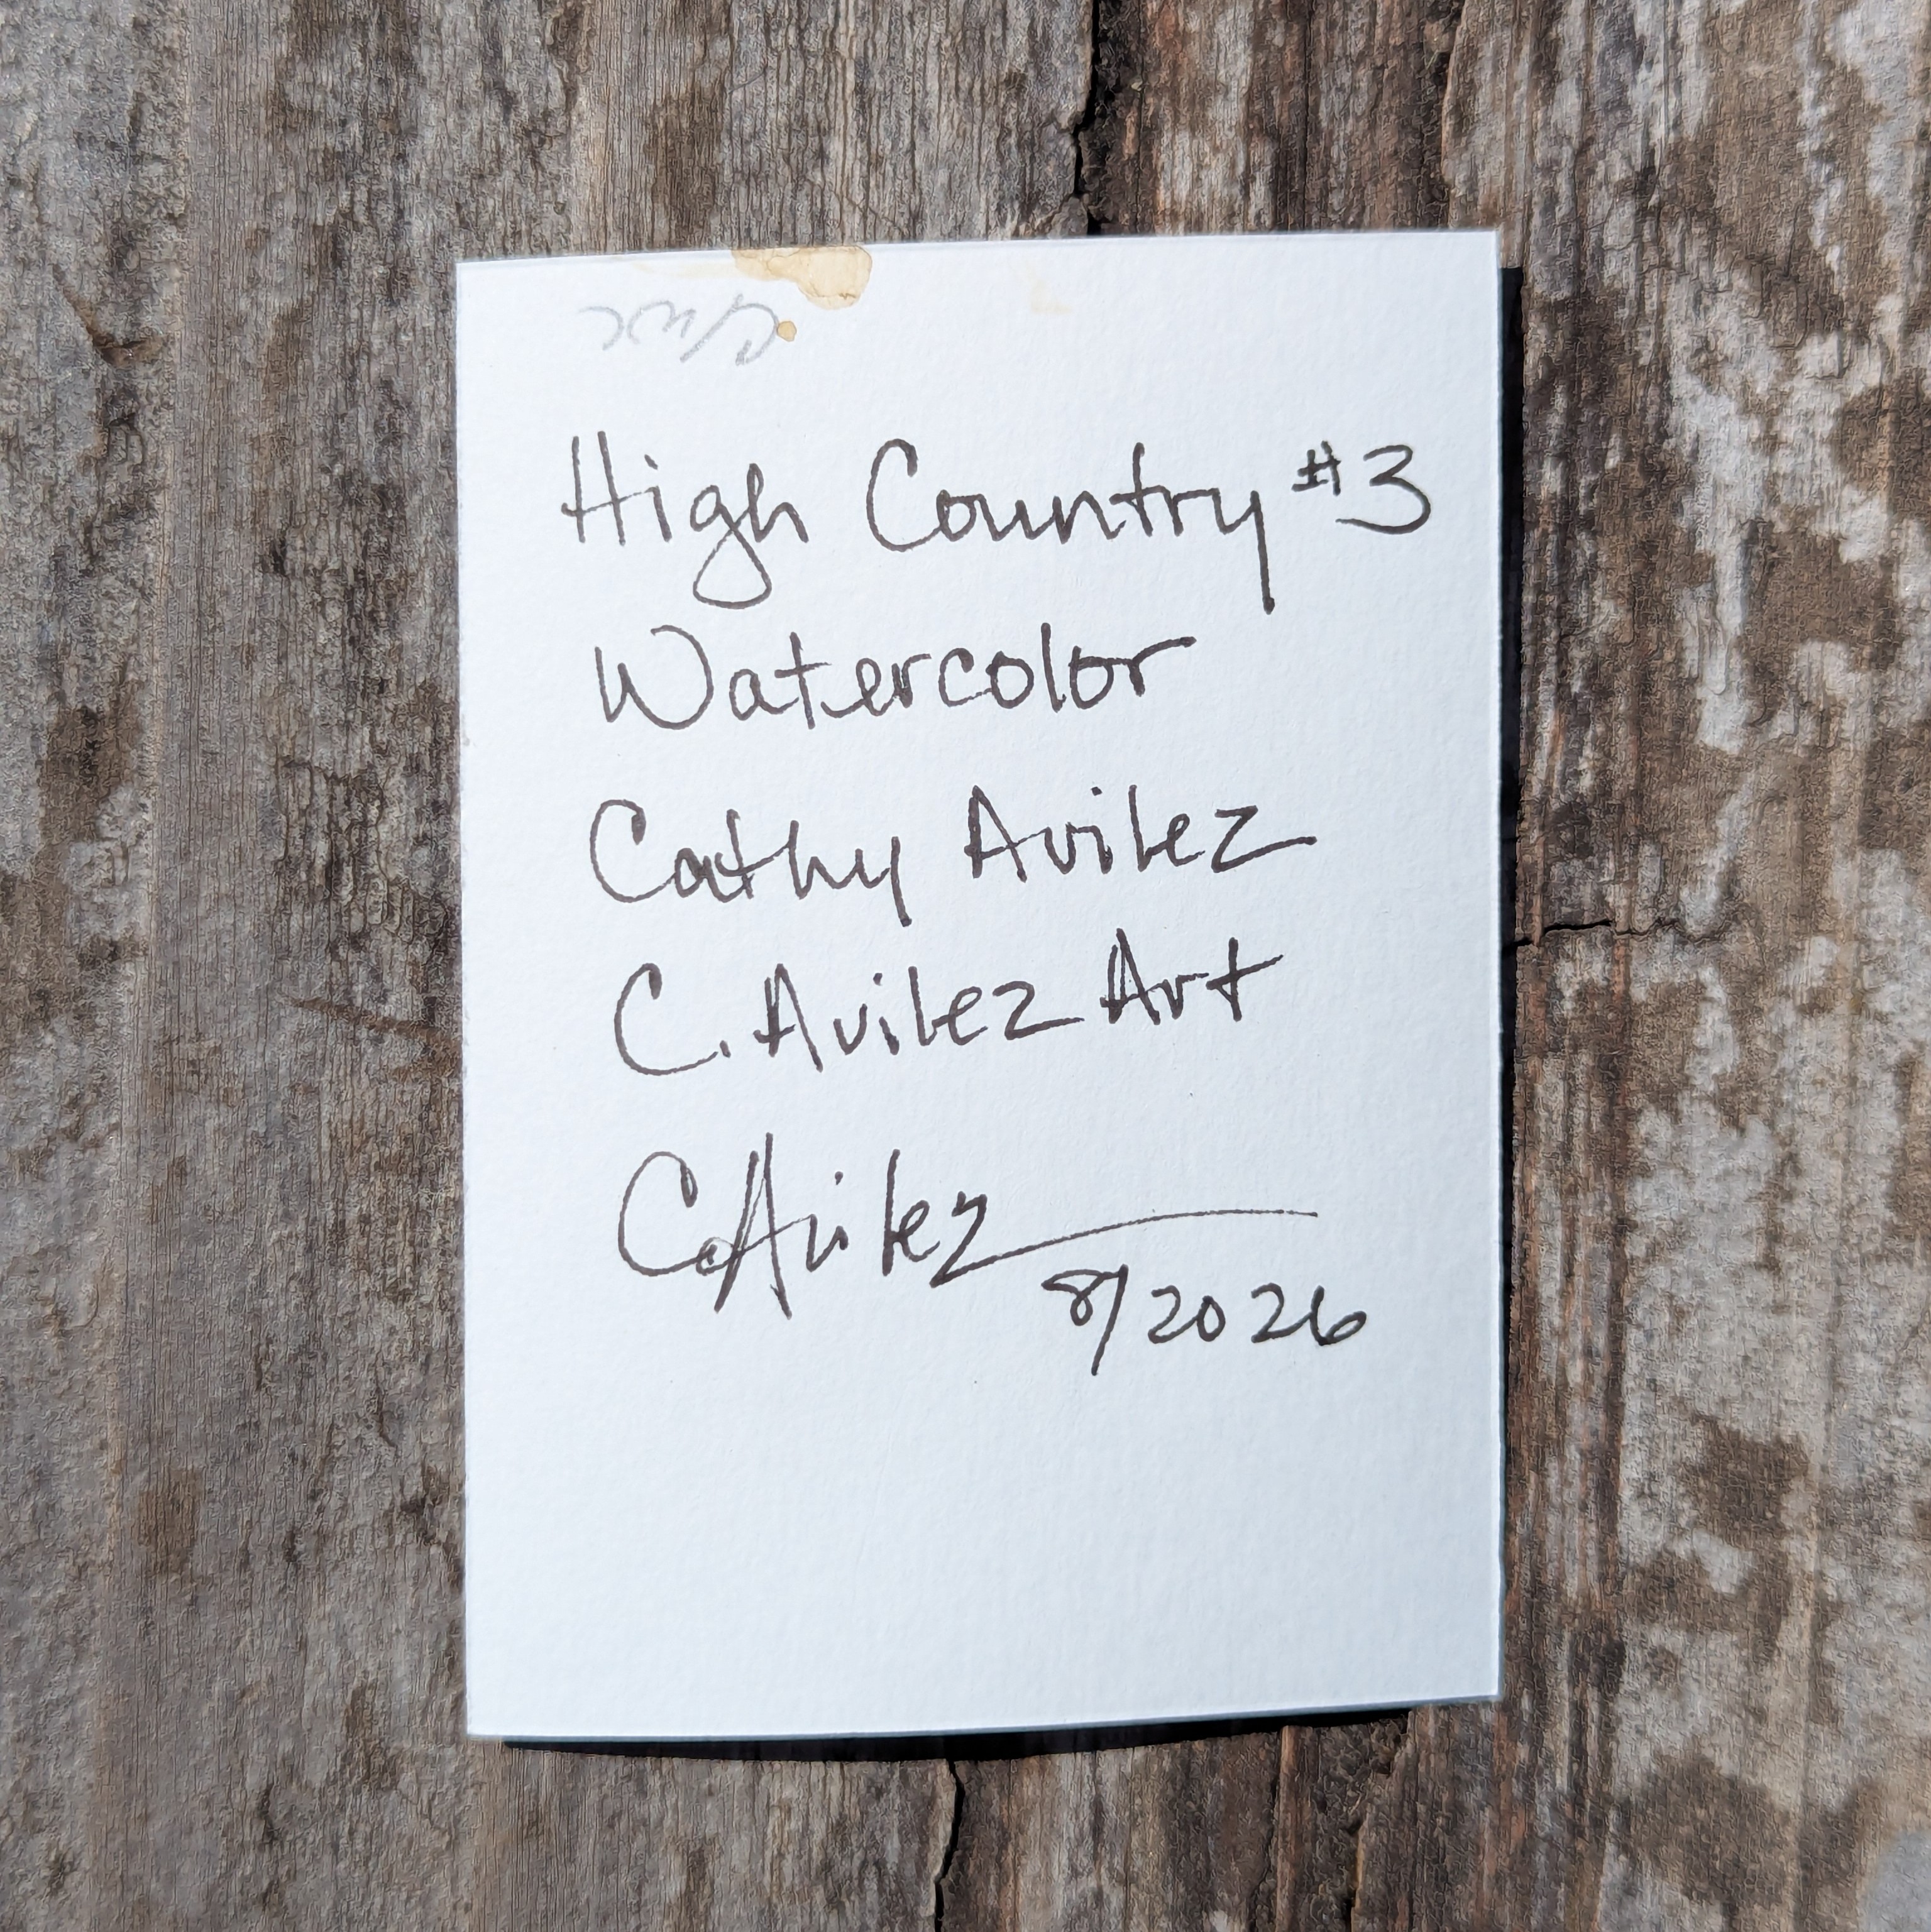 High Country #3
Watercolor
Cathy Avilez
C. Avilez Art
C. Avilez
8/2026